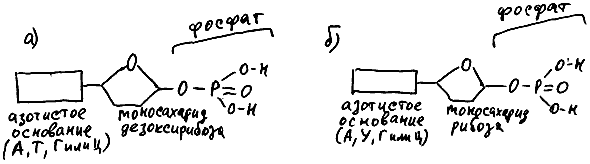 а)
фосфат
O
O
P
O-H
O
O-H
азотистое
основание
(А, Т, Г или Ц)
моносахарид
дезоксирибоза
б)
фосфат
O
O
P
O-H
O
O-H
азотистое
основание
(А, У, Г или Ц)
моносахарид
рибоза